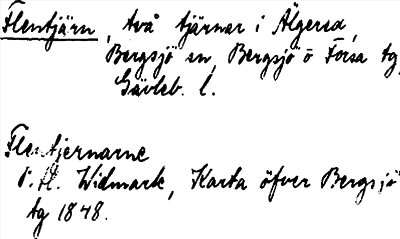 Flentjärn, två tjärnar i Älgered,
Bergsjö sn, Bergsjö o Forsa tg,
Gävleb. l.
Flentjernarne
P. H. Widmark, Karta öfver Bergsjö
tg 1848.